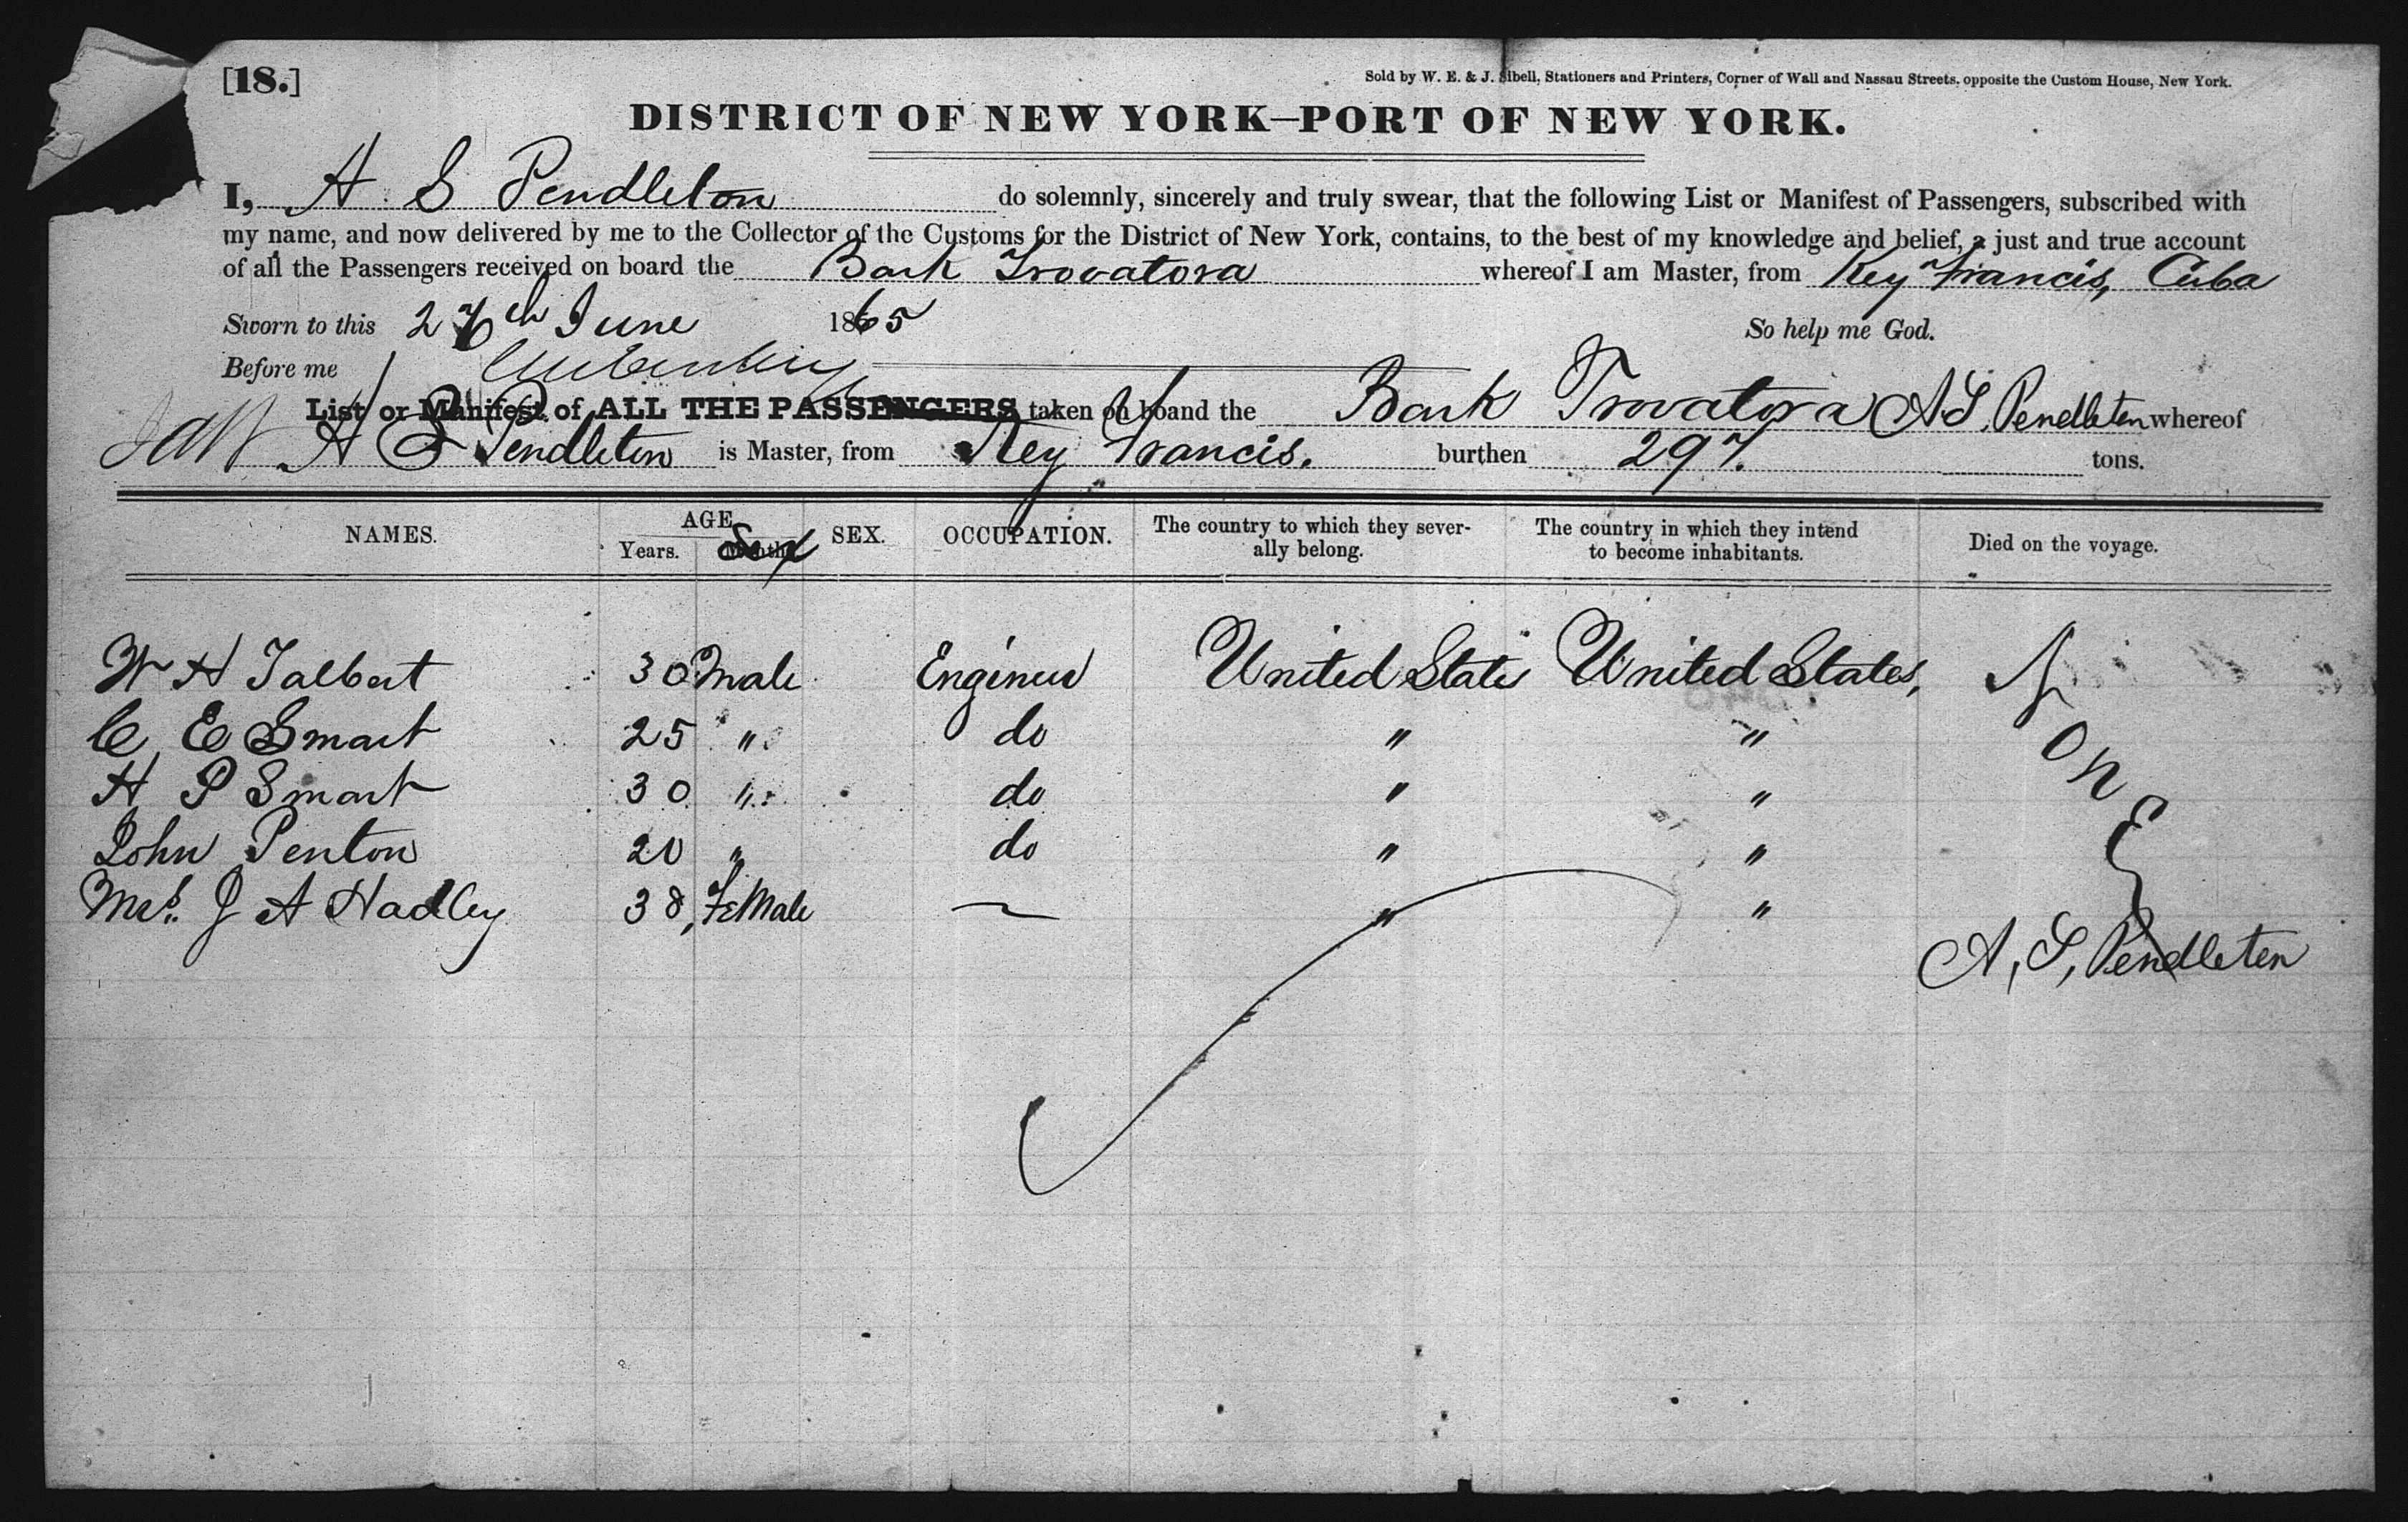 [18.]
Sold by W. E. & J. Sibell, Stationers and Printers, Corner of Wall and Nassau Streets, opposite the Custom House, New York.
DISTRICT OF NEW YORK—PORT OF NEW YORK.
I, A S Pendleton do solemnly, sincerely and truly swear, that the following List or Manifest of Passengers, subscribed with
my name, and now delivered by me to the Collector of the Customs for the District of New York, contains, to the best of my knowledge and belief, a just and true account
of all the Passengers received on board the Bark Trovatora whereof I am Master, from Key Francis, Cuba
Sworn to this th June 1865 So help me God.
Before me
List or Manifest of ALL THE PASSENGERS taken on board the Bark Trovatora A S, Pendleton whereof
A S Pendleton is Master, from Key Francis. burthen 297. tons.
NAMES. AGE SEX. OCCUPATION. The country to which they sever- The country in which they intend Died on the voyage.
Years. Months Sex ally belong. to become inhabitants.
W H Talbert 30 Male Engineer United States United States, None
C E Smart 25 " do " "
H P Smart 30 " do " "
John Penton 20 " do " "
Mrs. J A Hadley 38, FeMale — " "
A, S, Pendleton